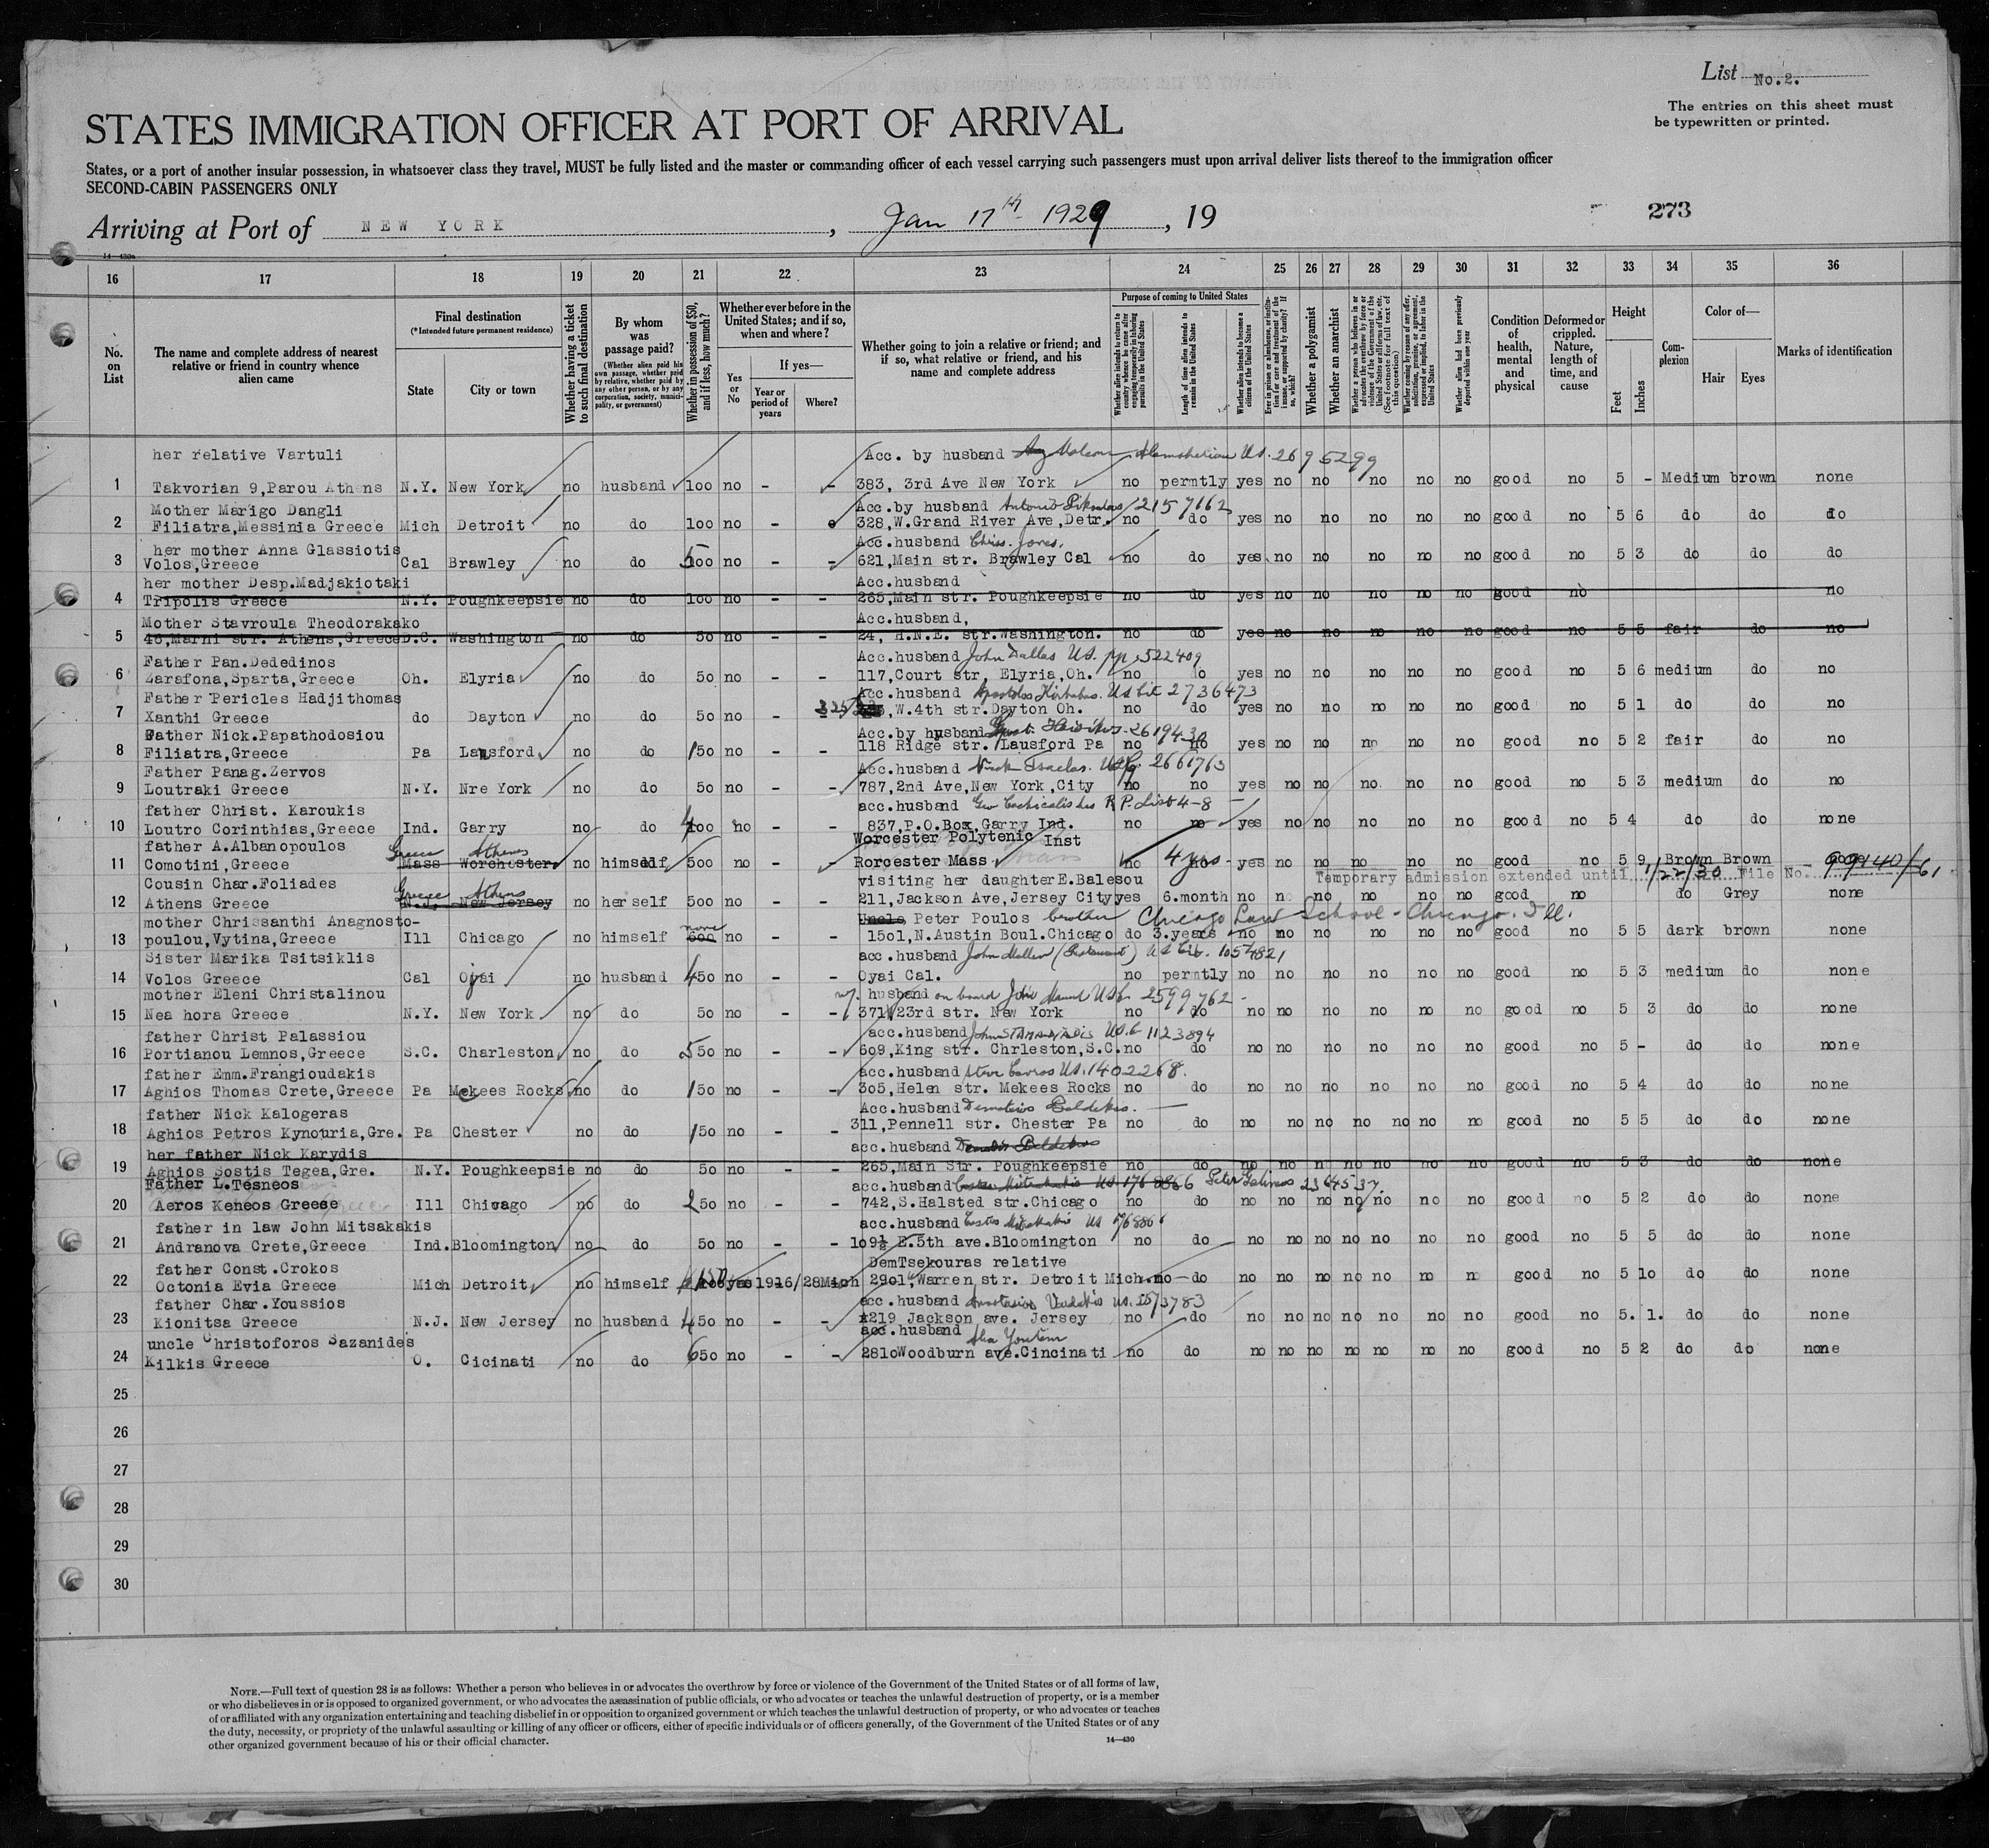 List No.2.
The entries on this sheet must
be typewritten or printed.
STATES IMMIGRATION OFFICER AT PORT OF ARRIVAL
States, or a port of another insular possession, in whatsoever class they travel, MUST be fully listed and the master or commanding officer of each vessel carrying such passengers must upon arrival deliver lists thereof to the immigration officer
SECOND-CABIN PASSENGERS ONLY
Arriving at Port of NEW YORK , Jan 17th 1929 , 19
273
14-430a
16 17 18 19 20 21 22 23 24 25 26 27 28 29 30 31 32 33 34 35 36
No. on List
The name and complete address of nearest relative or friend in country whence alien came
Final destination
(*Intended future permanent residence)
State
City or town
Whether having a ticket to such final destination
By whom was passage paid?
(Whether alien paid his own passage, whether paid by relative, whether paid by any other person, or by any corporation, society, municipality, or government)
Whether in possession of $50, and if less, how much?
Whether ever before in the United States; and if so, when and where?
Yes or No
If yes—
Year or period of years
Where?
Whether going to join a relative or friend; and if so, what relative or friend, and his name and complete address
Purpose of coming to United States
Whether alien intends to return to country whence he came after engaging temporarily in laboring pursuits in the United States
Length of time alien intends to remain in the United States
Whether alien intends to become a citizen of the United States
Ever in prison or almshouse, or institution for care and treatment of the insane, or supported by charity? If so, which?
Whether a polygamist
Whether an anarchist
Whether a person who believes in or advocates the overthrow by force or violence of the Government of the United States or all forms of law, etc. (See footnote for full text of this question)
Whether coming by reason of any offer, solicitation, promise, or agreement, expressed or implied, to labor in the United States
Whether alien had been previously deported within one year
Condition of health, mental and physical
Deformed or crippled. Nature, length of time, and cause
Height
Feet
Inches
Complexion
Color of—
Hair
Eyes
Marks of identification
her relative Vartuli Acc. by husband 2695299
1 Takvorian 9,Parou Athens N.Y. New York no husband 100 no - - 383, 3rd Ave New York no permtly yes no no no no no good no 5 - Medium brown none
Mother Marigo Dangli Acc.by husband 2157162
2 Filiatra,Messinia Greece Mich Detroit no do 100 no - 328,W.Grand River Ave,Detr. no do yes no no no no no good no 5 6 do do do
her mother Anna Glassiotis Acc.husband Chriss. Jones.
3 Volos,Greece Cal Brawley no do 500 no - - 621,Main str. Brawley Cal no do yes no no no no no good no 5 3 do do do
her mother Desp.Madjakiotaki Acc.husband
4 Tripolis Greece N.Y. Poughkeepsie no do 100 no - - 265,Main str. Poughkeepsie no do yes no no no no no good no no
Mother Stavroula Theodorakako Acc.husband,
5 46,Marni str. Athens,Greece D.C. Washington no do 50 no - - 24, H.N.E. str.Washington. no do yes no no no no no good no 5 5 fair do no
Father Pan.Dededinos Acc.husband John Dallas US. pp. 522409
6 Zarafona,Sparta,Greece Oh. Elyria no do 50 no - - 117,Court str, Elyria,Oh. no do yes no no no no no good no 5 6 medium do no
Father Pericles Hadjithomas Acc.husband 2736473
7 Xanthi Greece do Dayton no do 50 no - 325 W.4th str.Dayton Oh. no do yes no no no no no good no 5 1 do do no
Father Nick.Papathodosiou Acc.by husband 2619430
8 Filiatra,Greece Pa Lansford no do 150 no - - 118 Ridge str. Lausford Pa no no yes no no no no no good no 5 2 fair do no
Father Panag.Zervos Acc.husband 2661763
9 Loutraki Greece N.Y. Nre York no do 50 no - - 787,2nd Ave,New York,City no no yes no no no no no good no 5 3 medium do no
father Christ. Karoukis acc.husband R P. List 4-8
10 Loutro Corinthias,Greece Ind. Garry no do 400 no - - 837,P.O.Box,Garry Ind. no no yes no no no no no good no 5 4 do do none
father A.Albanopoulos Greece Athens Worcester Polytenic Inst
11 Comotini,Greece Mass Worchester no himself 500 no - - Rorcester Mass no 4 yrs - yes no no no no no good no 5 9 Brown Brown
Temporary admission extended until 1/22/30 File No. 99140/61
Cousin Char.Foliades Greece Athens visiting her daughter E.Balesou
12 Athens Greece N.J. New Jersey no herself 500 no - - 211,Jackson Ave,Jersey City yes 6.month no no no no no no good no do Grey none
mother Chrissanthi Anagnosto- none Uncle Peter Poulos brother Chicago Law School - Chicago. Ill.
13 poulou,Vytina,Greece Ill Chicago no himself 600 no - - 1501,N.Austin Boul.Chicago do 3.years no no no no no no good no 5 5 dark brown none
Sister Marika Tsitsiklis acc.husband John Meller (Restaurant) 1054821
14 Volos Greece Cal Ojai no husband 450 no - - Oyai Cal. no permtly no no no no no no good no 5 3 medium do none
mother Eleni Christalinou husband on board 2599762
15 Nea hora Greece N.Y. New York no do 50 no - - 371 23rd str. New York no do no no no no no no good no 5 3 do do none
father Christ Palassiou acc.husband 1123894
16 Portianou Lemnos,Greece S.C. Charleston no do 550 no - - 609,King str. Chrleston,S.C. no do no no no no no no good no 5 - do do none
father Emm.Frangioudakis acc.husband Steve US. 1402268.
17 Aghios Thomas Crete,Greece Pa Mckees Rocks no do 150 no - - 305,Helen str. Mekees Rocks no do no no no no no no good no 5 4 do do none
father Nick Kalogeras Acc.husband
18 Aghios Petros Kynouria,Gre. Pa Chester no do 150 no - - 311,Pennell str. Chester Pa no do no no no no no no good no 5 5 do do none
her father Nick Karydis acc.husband
19 Aghios Sostis Tegea,Gre. N.Y. Poughkeepsie no do 50 no - - 265,Main Str. Poughkeepsie no do no no no no no no no good no 5 3 do do none
Father L.Tesneos acc.husband Peter 2364537
20 Aeros Keneos Greese Ill Chivago no do 250 no - - 742,S.Halsted str.Chicago no do no no no no no no no good no 5 2 do do none
father in law John Mitsakakis acc.husband Costas Mitsakakis US 1768866
21 Andranova Crete,Greece Ind. Bloomington no do 50 no - - 109½ E.5th ave.Bloomington no do no no no no no no no good no 5 5 do do none
father Const.Crokos DemTsekouras relative
22 Octonia Evia Greece Mich Detroit no himself 150 yes 1916/28 Mich 2901,Warren str. Detroit Mich. no - do no no no no no no n good no 5 10 do do none
father Char.Youssios acc. husband
23 Kionitsa Greece N.J. New Jersey no husband 450 no - - 219 Jackson ave. Jersey no do no no no no no no no good no 5. 1. do do none
uncle Christoforos Sazanides acc.husband
24 Kilkis Greece O. Cicinati no do 650 no - - 2810Woodburn ave.Cincinati no do no no no no no no no good no 5 2 do do none
25
26
27
28
29
30
NOTE.—Full text of question 28 is as follows: Whether a person who believes in or advocates the overthrow by force or violence of the Government of the United States or of all forms of law,
or who disbelieves in or is opposed to organized government, or who advocates the assassination of public officials, or who advocates or teaches the unlawful destruction of property, or is a member
of or affiliated with any organization entertaining and teaching disbelief in or opposition to organized government or which teaches the unlawful destruction of property, or who advocates or teaches
the duty, necessity, or propriety of the unlawful assaulting or killing of any officer or officers, either of specific individuals or of officers generally, of the Government of the United States or of any
other organized government because of his or their official character.
14—430